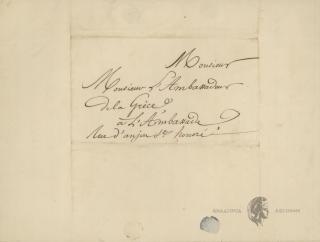 Monsieur
Monsieur L'Ambassadeur
de la Grèce
à L'Ambassade
Rue d'anjou St. honoré
ΑΚΑΔΗΜΙΑ ΑΘΗΝΩΝ